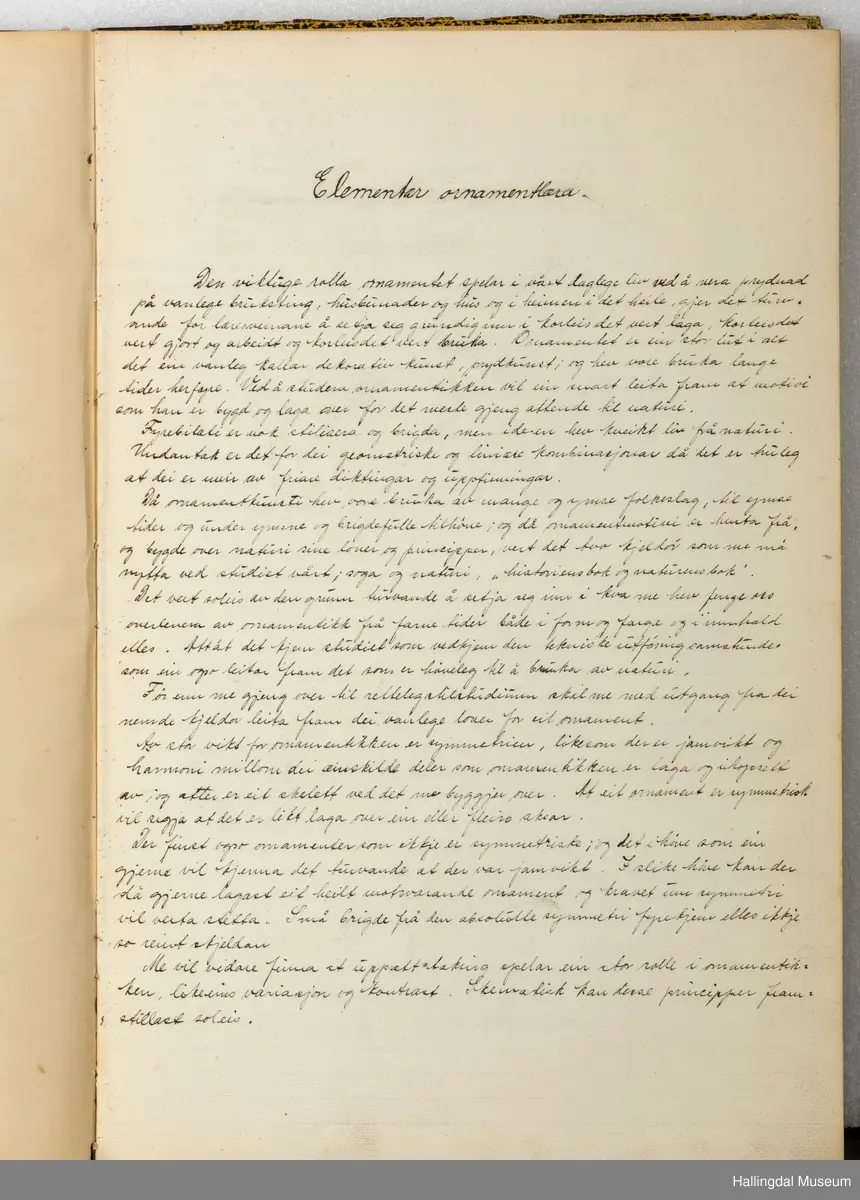 Elementær ornamentlæra.
Den viktuge rolla ornamentet spelar i vårt daglege liv ved å vera prydnad
på vanlege bruksting, husbunader og hus og i heimen i det heile, gjer det turv=
ande for læresveinane å setja seg grundig inn i korleis det vert laga, korleis det
vert gjort og arbeidt og korleis det vert bruka. Ornamentet er ein stor lut i alt
det ein vanleg kallar dekorativ kunst, prydkunst; og hev vore bruka lange
tider herfyre. Ved å studera ornamentikken vil ein snart leita fram at motivi
som han er bygd og laga over for det meste gjeng attende til naturi.
Fyrebilæti er nok stilisera og brigda, men ideen hev kveikt liv frå naturi.
Undantak er det for dei geometriske og liniære kombinasjonar då det er truleg
at dei er meir av friare diktingar og uppfinningar.
Då ornamentkunsti hev vore bruka av mange og ymse folkeslag, til ymse
tider og under ymsne og brigdefulle tilhöve; og då ornamentmotivi er henta frå,
og bygde over naturi sine lover og principper, vert det tvo kjeldor som me må
nytta ved studiet vårt; soga og naturi, „historiensbok og naturensbok".
Det vert soleis av den grunn turvande å setja seg inn i kva me hev fenge oss
overlevera av ornamentikk frå farne tider både i form og farge og i innhald
elles. Attåt det kjem studiet som vedkjem den tekniske utföring samstundes
som ein ogso leitar fram det som er höveleg til å bruka av naturi.
För enn me gjeng over til rettelegstilstudium skil me med utgang fra dei
nemde kjeldor leita fram dei vanlege lover for eit ornament.
Av stor vikt for ornamentikken er symmetrien, likesom der er jamvikt og
harmoni millom dei einskilde deler som ornamentikken er laga og ihopsett
av; og atter er eit skelett ved det me byggjer over. At eit ornament er symmetrisk
vil segja at det er likt laga over ein eller fleire aksar.
Der finst ogso ornamenter som ikkje er symmetriske; og det i höve som ein
gjerne vil kjenna det turvande at der var jamvikt. I slike höve kan der
då gjerne lagast eit heilt motsvarande ornament og kravet um symmetri
vil verta stetta. Små brigde frå den absolutte symmetri fyrekjem elles ikkje
so reint skjeldan
Me vil vidare finna at uppatt=taking spelar ein stor rolle i ornamentik=
ken, likeeins variasjon og kontrast. Skematisk kan desse principper fram=
stillast soleis.
Hallingdal Museum